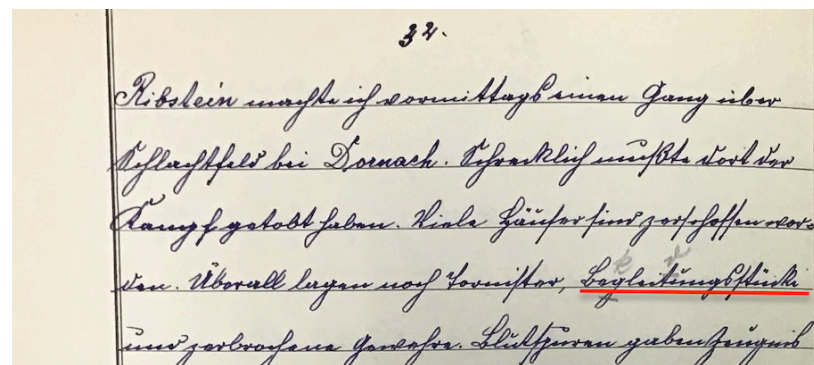 32.
Ribstein machte ich vormittags einen Gang über
Schlachtfeld bei Dornach. Schrecklich mußte dort der
Kampf getobt haben. Viele Häuser sind zerschossen wor-
den. Überall lagen noch Tornister, Begleitungsstücke
und zerbrochene Gewehre. Blutspuren gaben Zeugnis